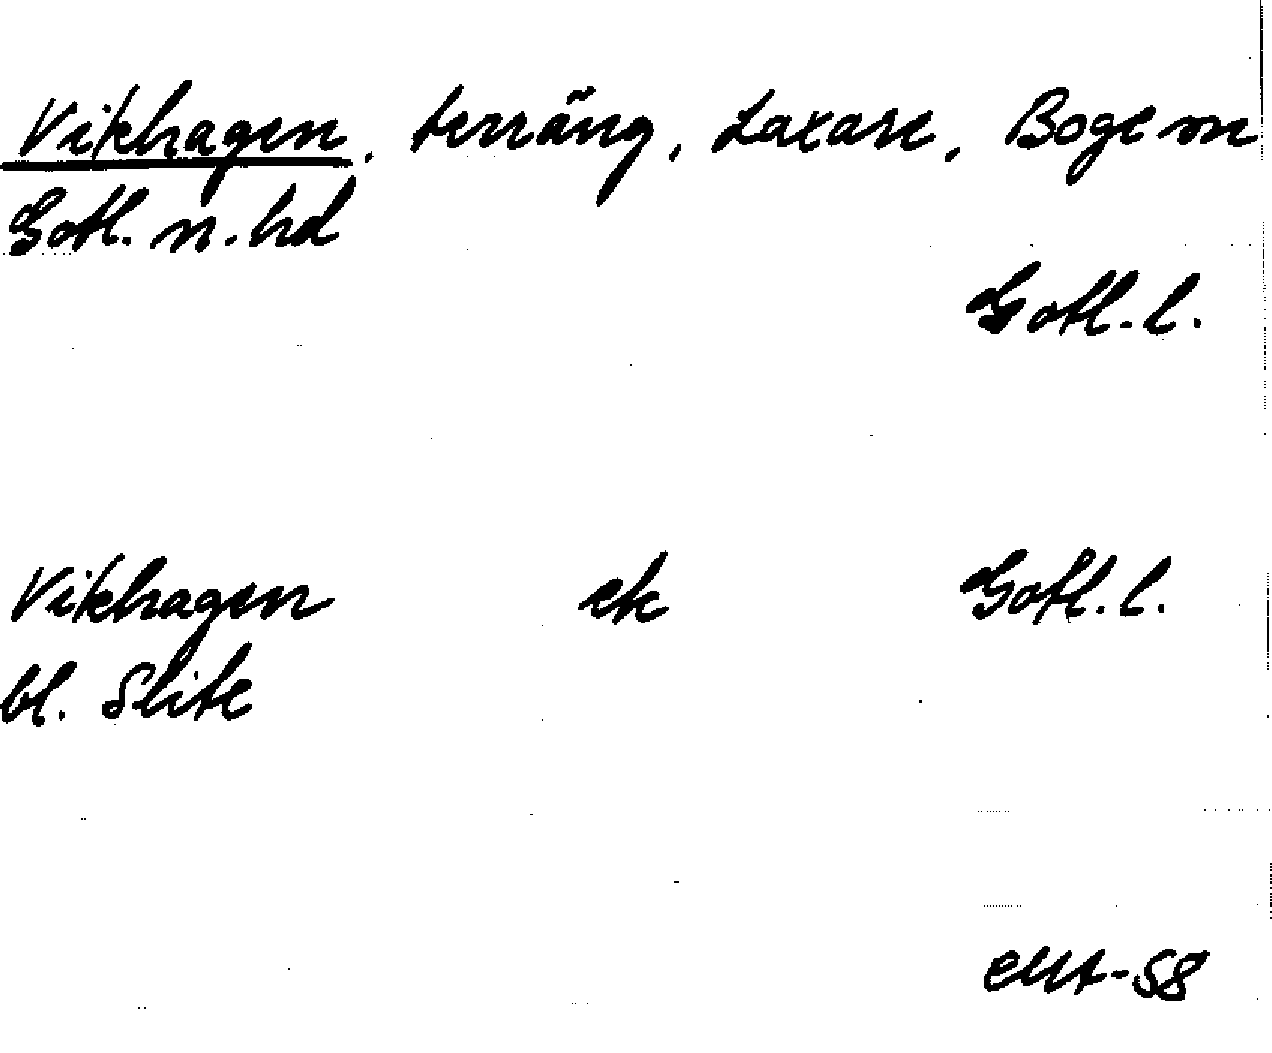 Vikhagen, terräng, Laxare, Boge sn
Gotl. n. hd
Gotl. l.
Vikhagen ek Gotl. l.
bl. Slite
-58